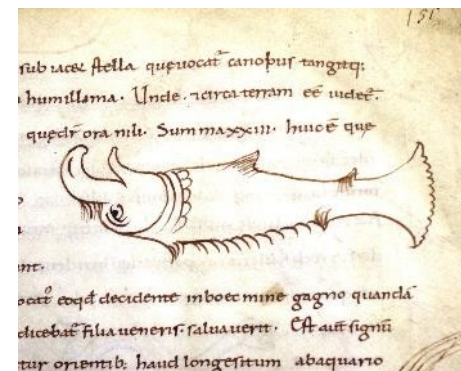 151
sub iacet stella que uocat̄ canopus tangitq;
humillima. Unde. ⁊ circa terram eē uidet̄.
quedr̄ ora nili. Summa xxiii. huic ē que
nt.
ocat̄ eo qd decidente in boec mine gagno quandā
dicebat̄ filia ueneris. salua uerit. Est aut̄ signū
tur orientib; haud longe situm ab aquario